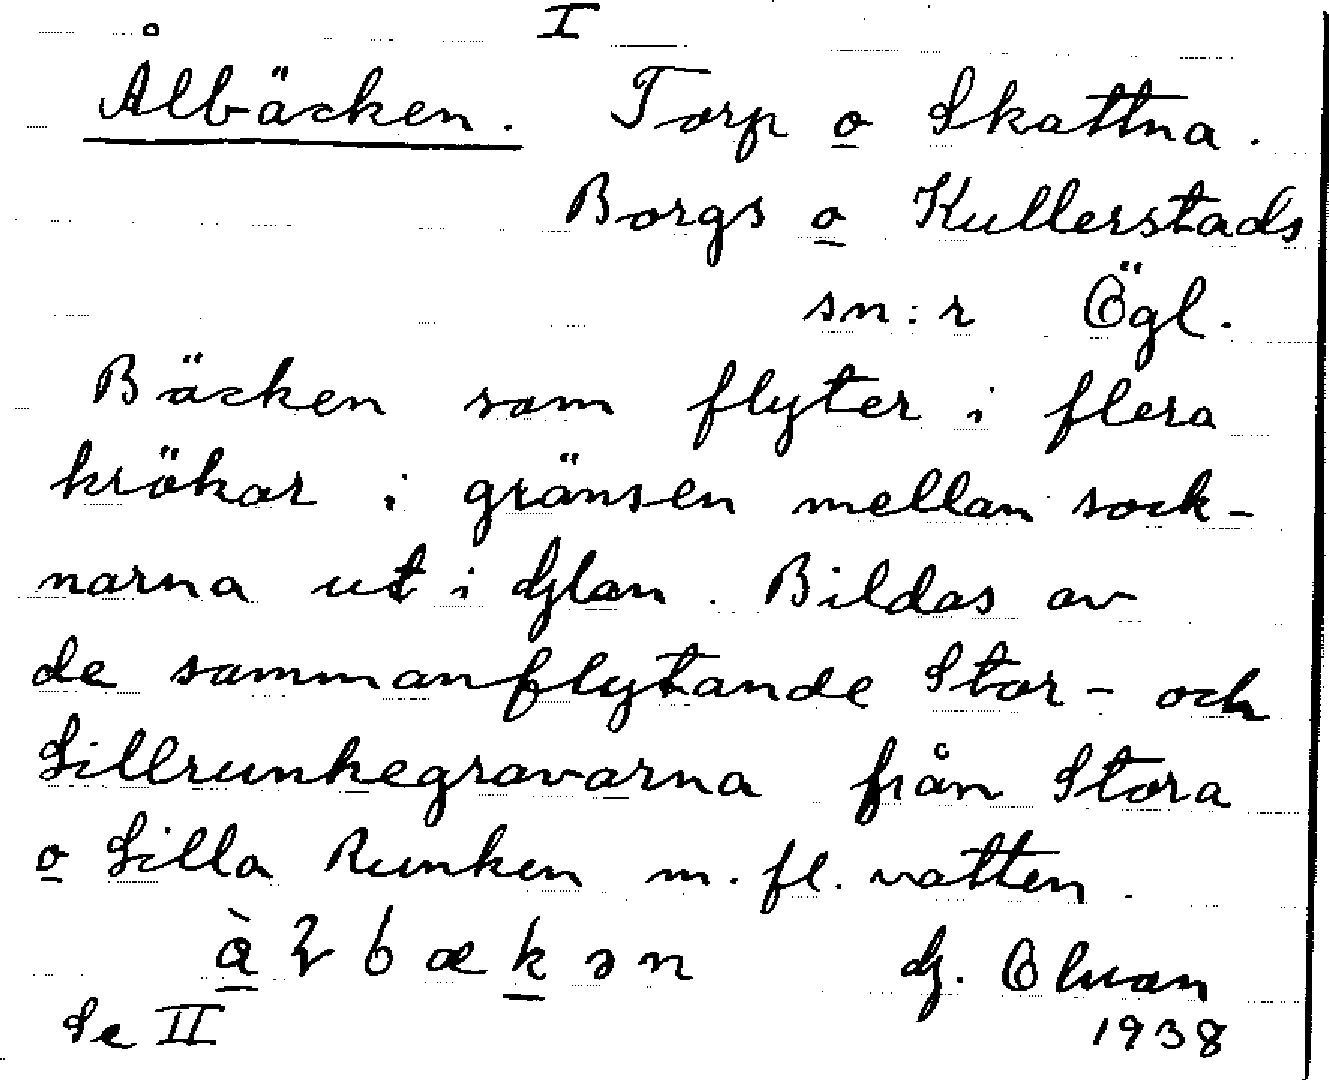 I
Ålbäcken. Torp o Skattna.
Borgs o Kullerstads
sn:r Ögl.
Bäcken som flyter i flera
krökar i gränsen mellan sock-
narna ut i Glan. Bildas av
de sammanflytande Stor- och
Lillrunkegravarna från Stora
o Lilla Runken m. fl. vatten.
b æ k ə n G.
Se II 1938